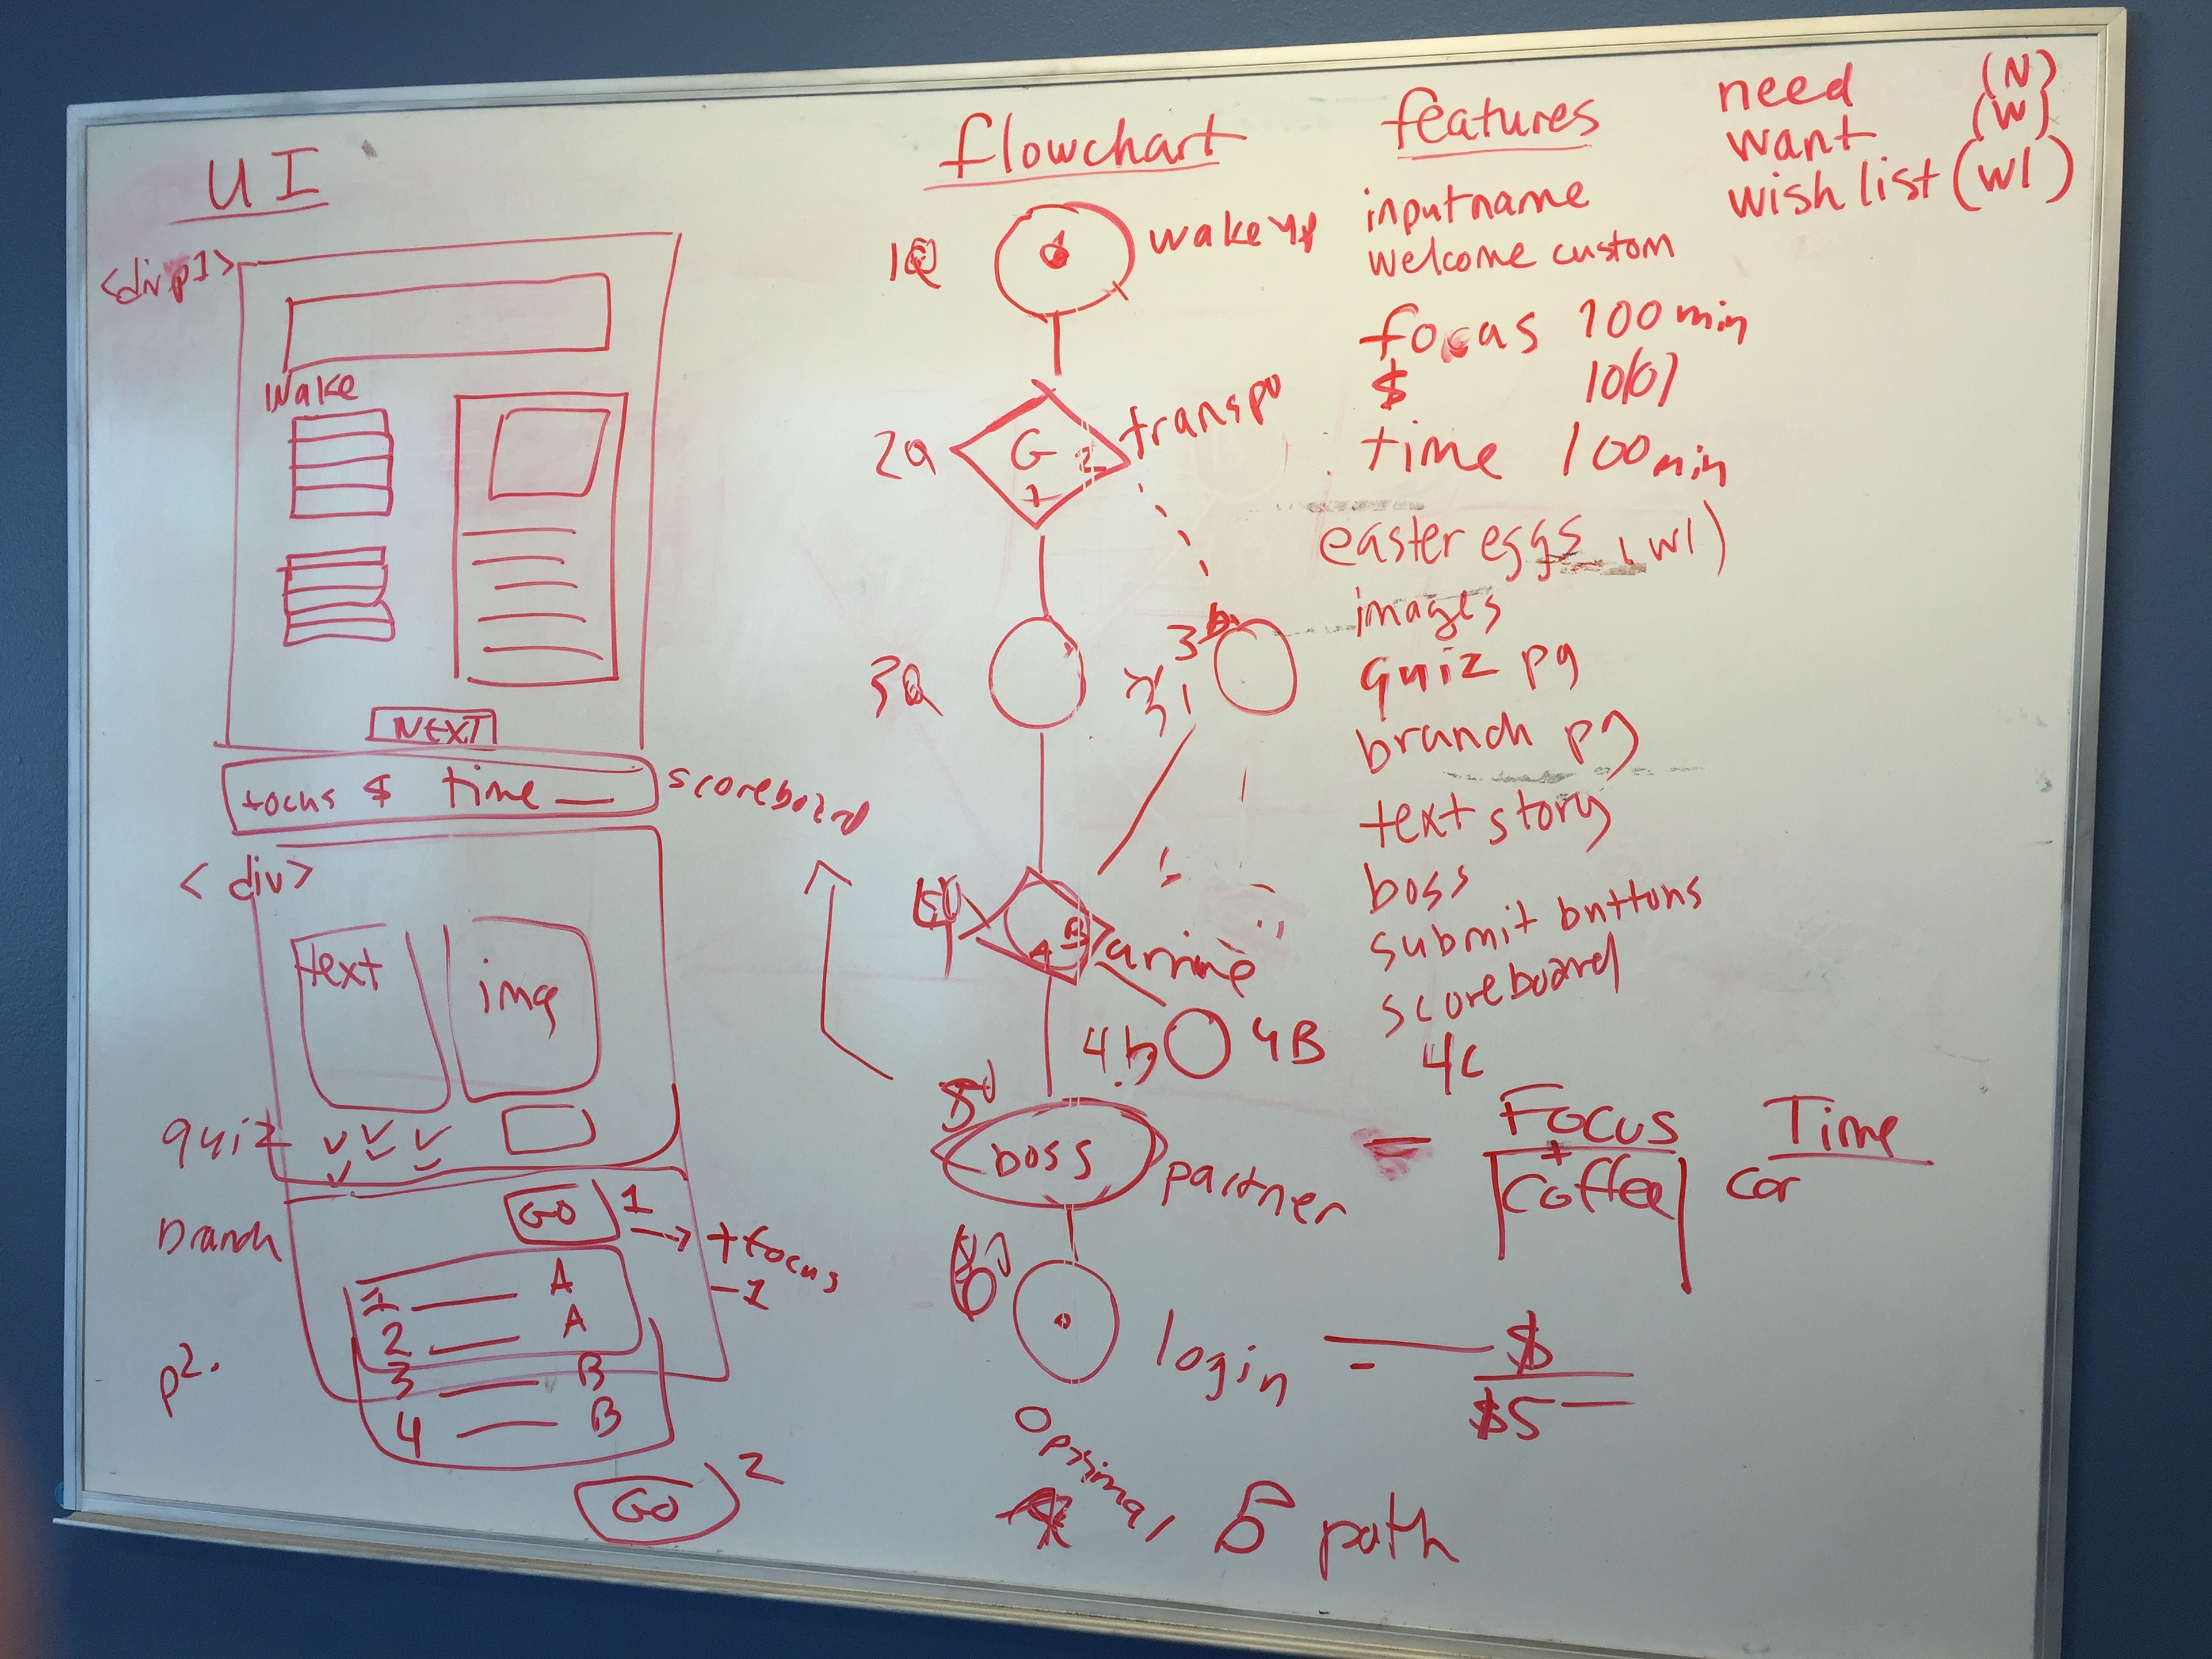 UI
<div p1>
Wake
NEXT
focus $ time
scoreboard
<div>
text
img
quiz
branch
GO 1
+focus
-1
1 A
2 A
3 B
4 B
p2.
GO 2
flowchart
wake up
2a
G 2
1
transpo
3a
3b
A B
arrive
4.b 4B
4c
boss
partner
6
login
optimal
5 path
features
input name
welcome custom
focus 100 min
$
time 100 min
easter eggs (wl)
images
quiz pg
branch pg
text story
boss
submit buttons
scoreboard
need (N)
want (W)
wish list (wl)
Focus
+
Coffee
Time
car
$
$5